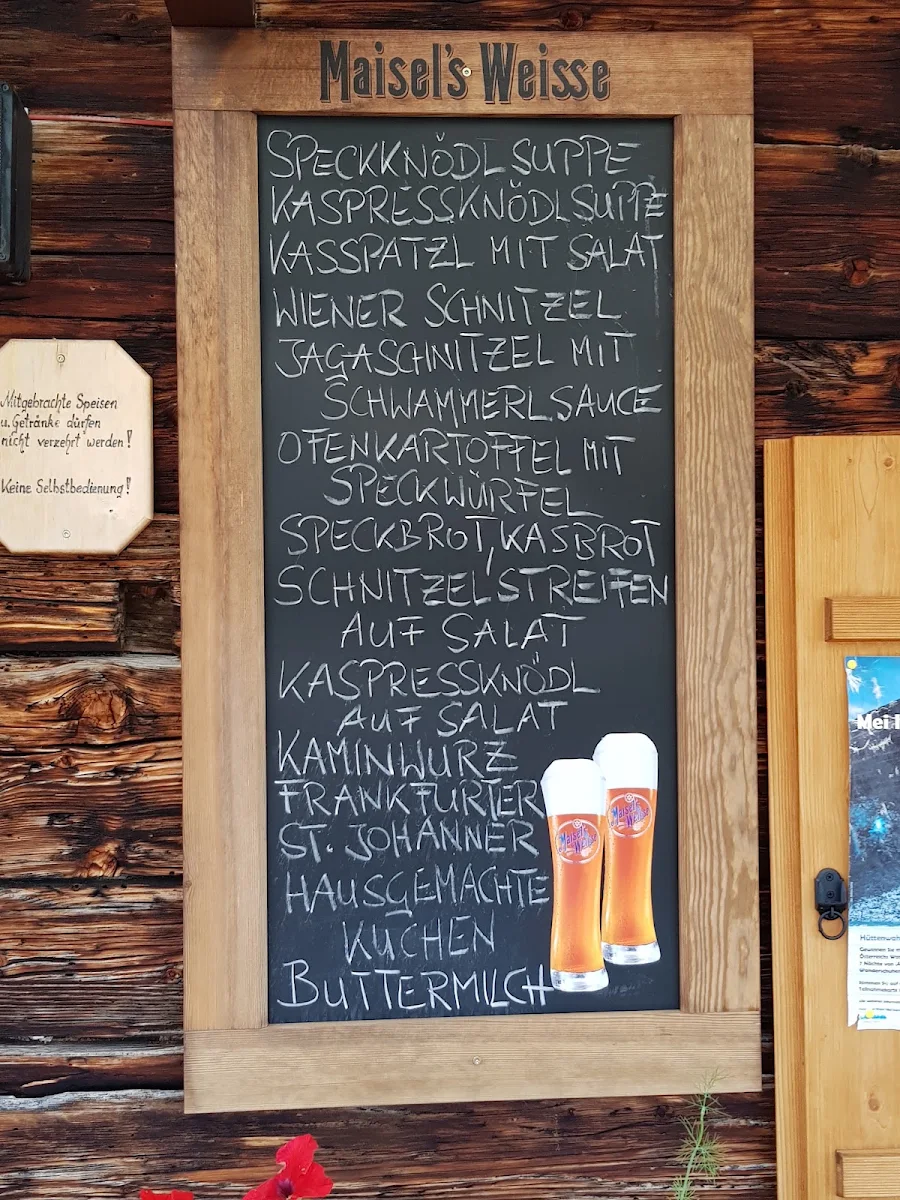 Maisel's Weisse
SPECKKNÖDLSUPPE
KASPRESSKNÖDLSUPPE
KASSPATZL MIT SALAT
WIENER SCHNITZEL
JAGASCHNITZEL MIT
SCHWAMMERLSAUCE
OFENKARTOFFEL MIT
SPECKWÜRFEL
SPECKBROT, KASBROT
SCHNITZELSTREIFEN
AUF SALAT
KASPRESSKNÖDL
AUF SALAT
KAMINWURZ
FRANKFURTER
ST. JOHANNER
HAUSGEMACHTE
KUCHEN
BUTTERMILCH
Maisel's
Weisse
Maisel's
Weisse
Mitgebrachte Speisen
u. Getränke dürfen
nicht verzehrt werden!
Keine Selbstbedienung!
Mei